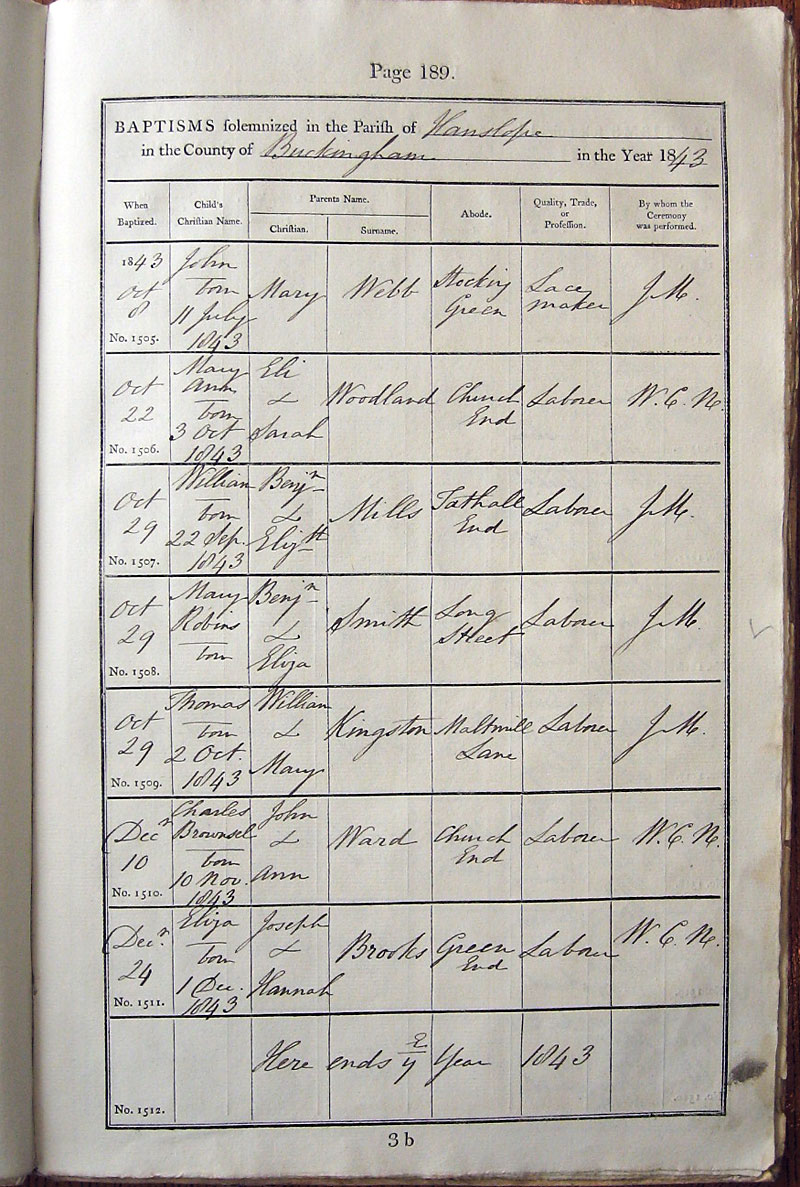 Page 189.
BAPTISMS solemnized in the Parish of Hanslope
in the County of Buckingham in the Year 1843
When Baptized. Child's Christian Name. Parents Name. Christian. Surname. Abode. Quality, Trade, or Profession. By whom the Ceremony was performed.
1843
Oct
8
No. 1505.
John
born
11 July
1843
Mary
Webb
Stocking
Green
Lace
maker
J. M.
Oct
22
No. 1506.
Mary
Ann
born
3 Oct
1843
Eli
&
Sarah
Woodland
Church
End
Laborer
W. C. N.
Oct
29
No. 1507.
William
born
22 Sep.
1843
Benjn
&
Elizth
Mills
Tathall
End
Laborer
J. M.
Oct
29
No. 1508.
Mary
Robins
born
Benjn
&
Eliza
Smith
Long
Street
Laborer
J. M.
Oct
29
No. 1509.
Thomas
born
2 Oct.
1843
William
&
Mary
Kingston
Maltmill
Lane
Laborer
J. M.
Decr
10
No. 1510.
Charles
Brownsel
born
10 Nov.
1843
John
&
Ann
Ward
Church
End
Laborer
W. C. N.
Decr.
24
No. 1511.
Eliza
born
1 Dec.
1843
Joseph
&
Hannah
Brooks
Green
End
Laborer
W. C. N.
Here ends ye Year 1843
No. 1512.
3 b